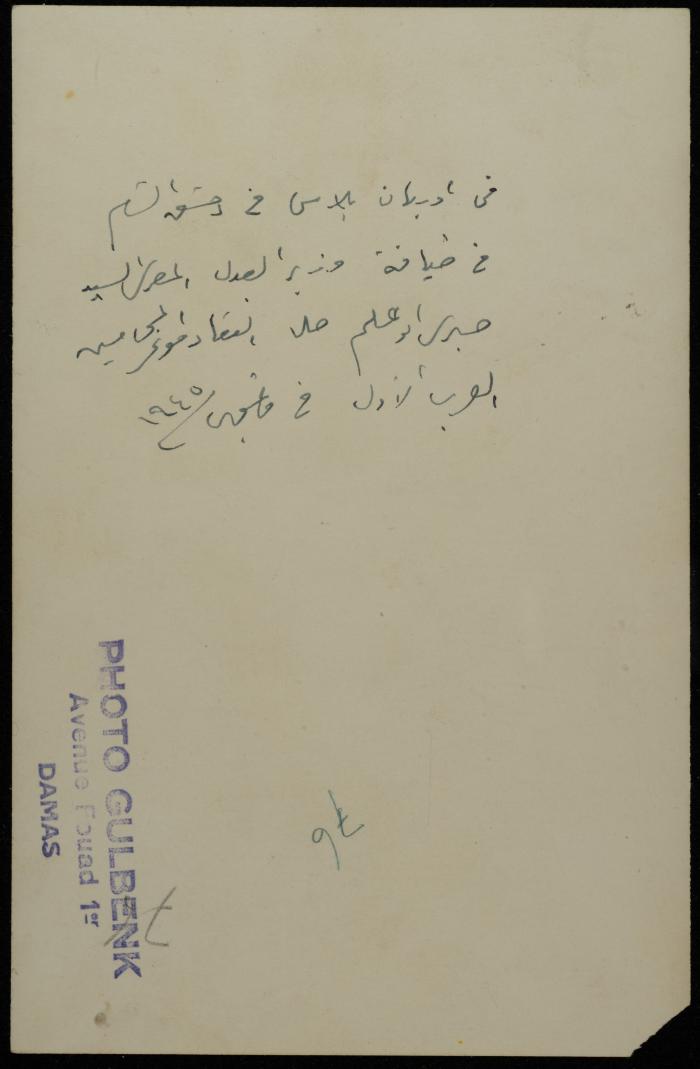 في اوريان بالاس في دمشق الشام
في ضيافة وزير العدل المصري السيد
صبري ابو علم خلال انعقاد مؤتمر المحامين
العرب الأول في دمشق / ١٩٤٥
PHOTO GULBENK
Avenue Fouad 1er
DAMAS